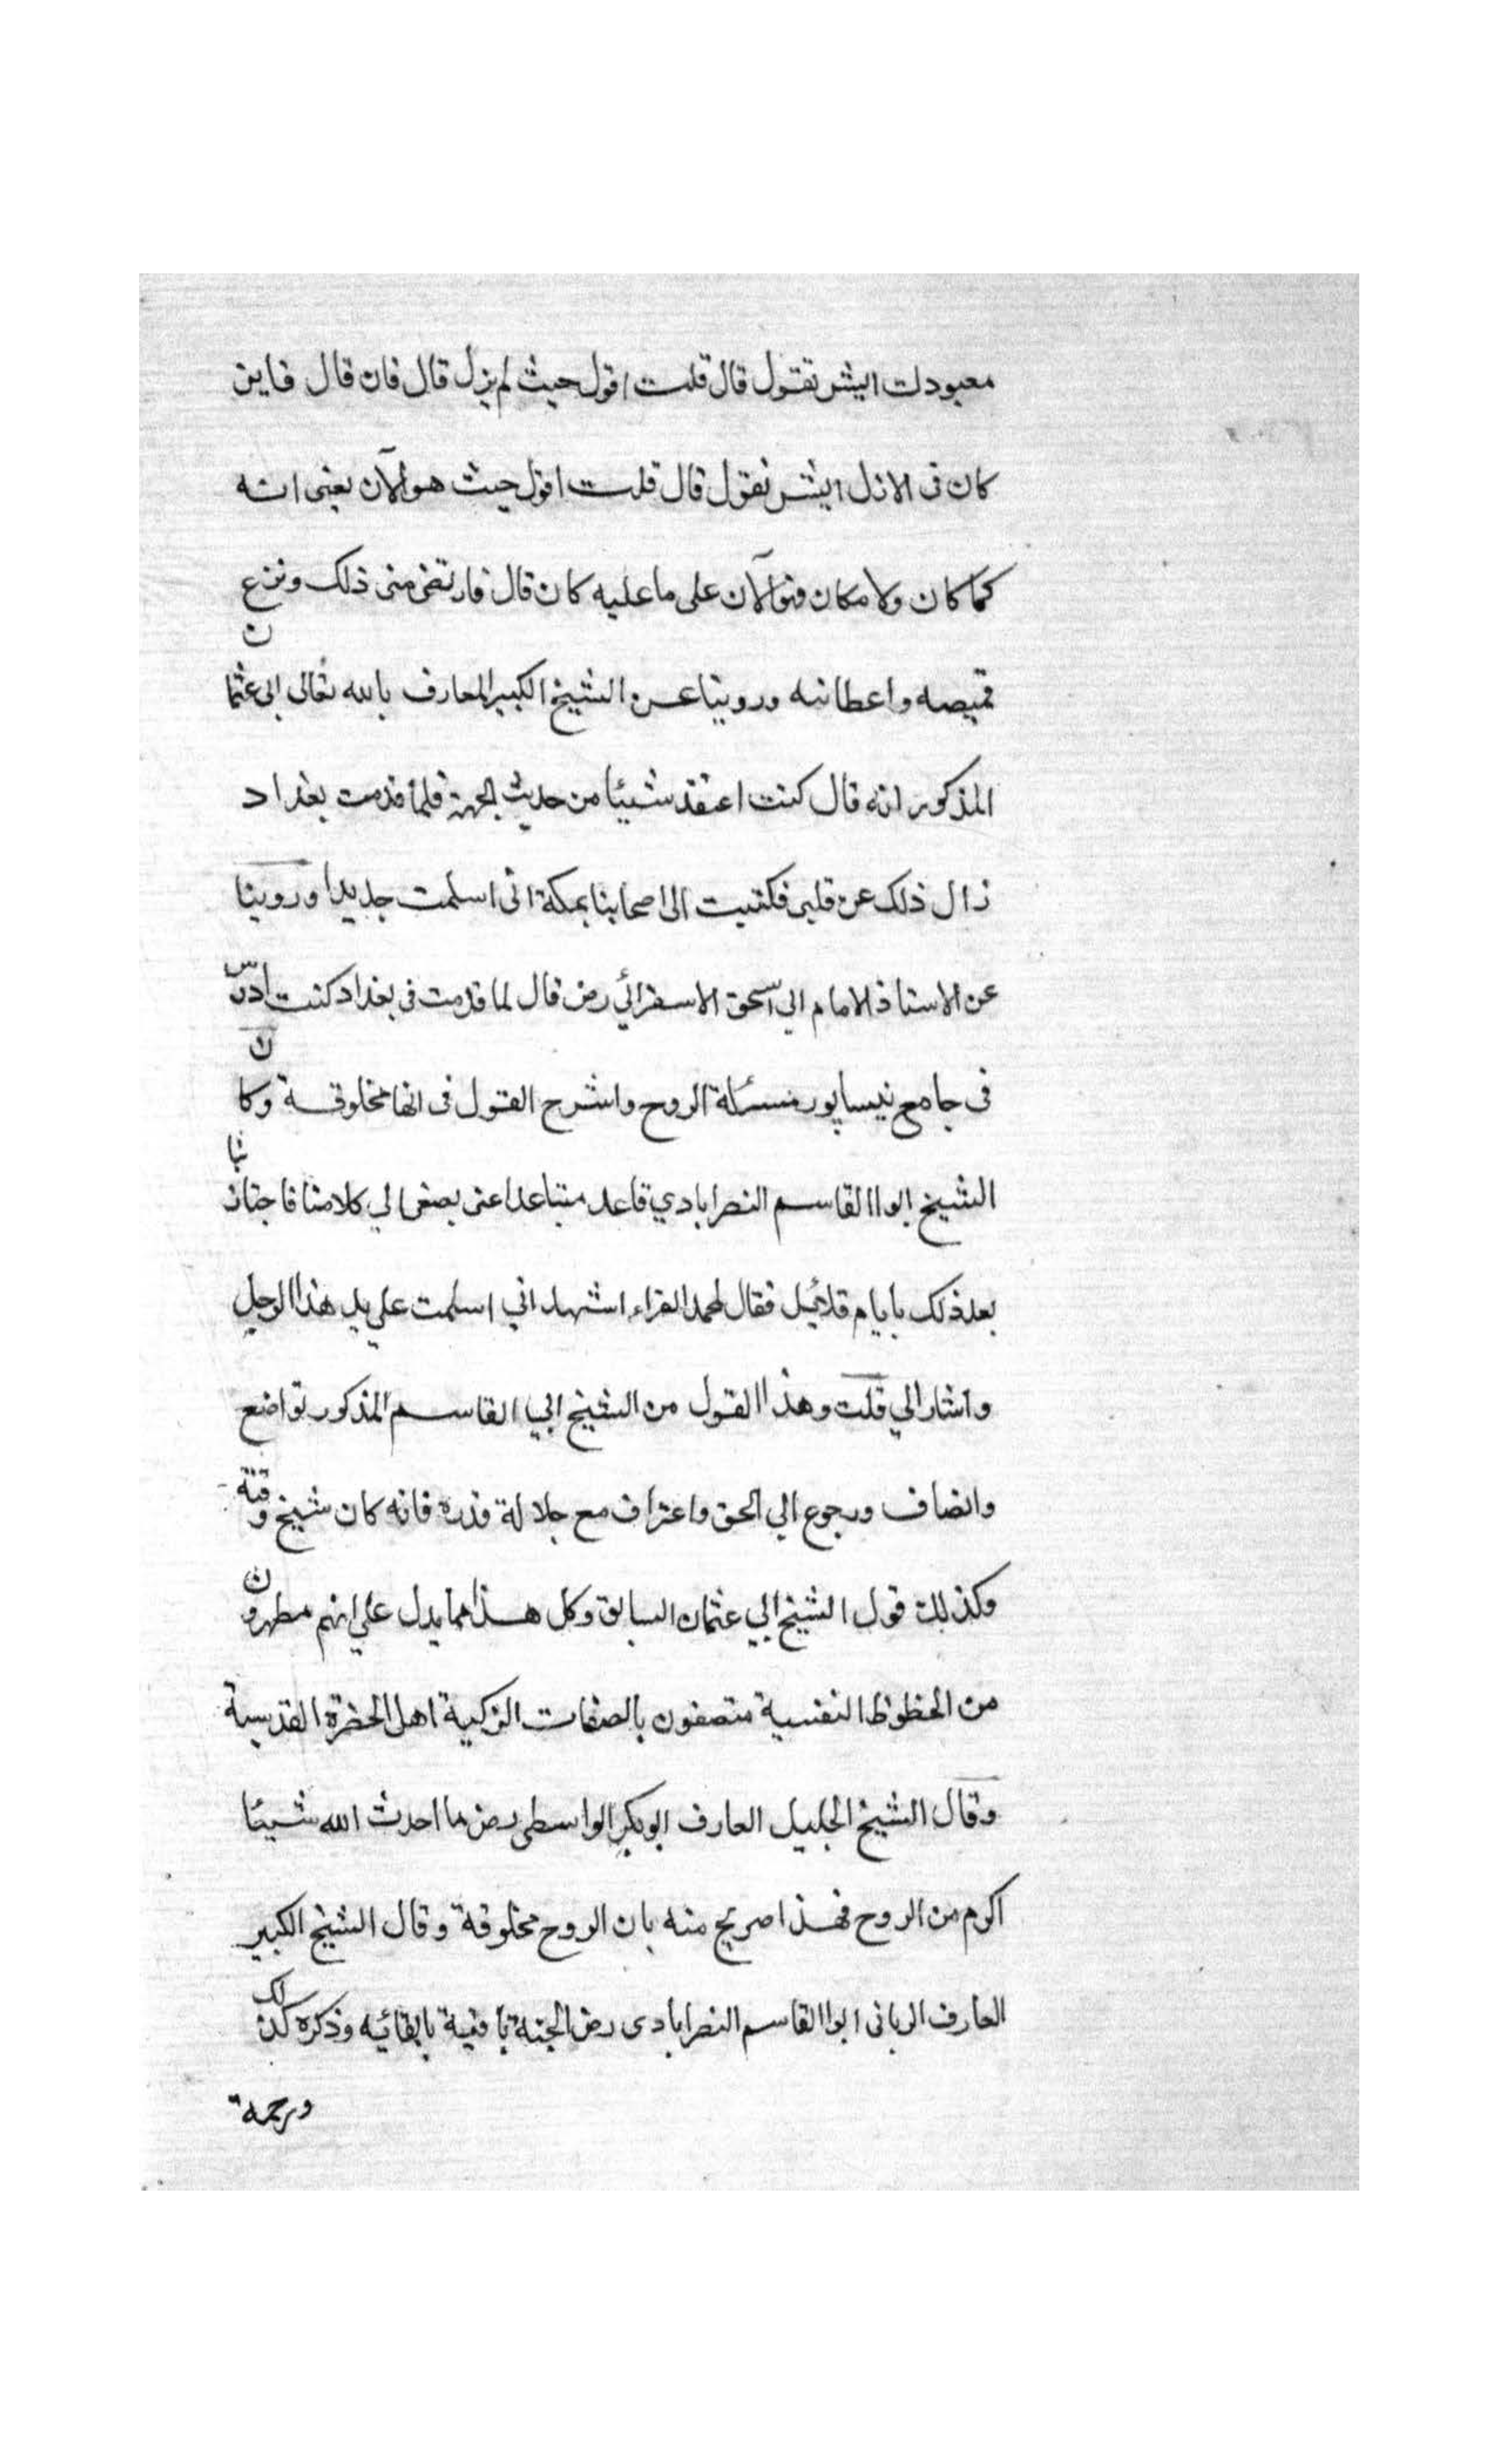 معبودك ايش تقول قال قلت اقول حيث لم يزل قال فان قال فاين
كان فى الازل ايش تقول قال قلت اقول حيث هو الآن يعنى انه
كما كان ولا مكان فهو الآن على ما عليه كان قال فارتضى منى ذلك ونزع
قميصه واعطانيه وروينا عن الشيخ الكبير العارف بالله تعالى ابى عثمان
المذكور انه قال كنت اعتقد شيئا من حديث الجهة فلما قدمت بغداد
زال ذلك عن قلبى فكتبت الى اصحابنا بمكة انى اسلمت جديدا وروينا
عن الاستاذ الامام ابي اسحق الاسفرائي رض قال لما قدمت فى بغداد كنت ادرس
فى جامع نيسابور مسئلة الروح واشرح القول فى انها مخلوقة وكان
الشيخ ابوا القاسم النصرابادي قاعد متباعدا عنى يصغى الي كلامنا فاجتازنا
بعد ذلك بايام قلائل فقال لمحمد الفراء اشهد اني اسلمت علي يد هذا الرجل
واشار الي قلت وهذا القول من الشيخ ابي القاسم المذكور تواضع
وانصاف ورجوع الي الحق واعتراف مع جلالة قدره فانه كان شيخ وقته
وكذلك قول الشيخ ابي عثمان السابق وكل هذا مما يدل علي انهم مطهرون
من الحظوظ النفسية متصفون بالصفات الزكية اهل الحضرة القدسية
وقال الشيخ الجليل العارف ابو بكر الواسطى رض ما احدث الله شيئا
اكرم من الروح فهذا صريح منه بان الروح مخلوقة وقال الشيخ الكبير
العارف الربانى ابوا القاسم النصرابادى رض الجنة باقية بابقائيه وذكره لك
ورحمة